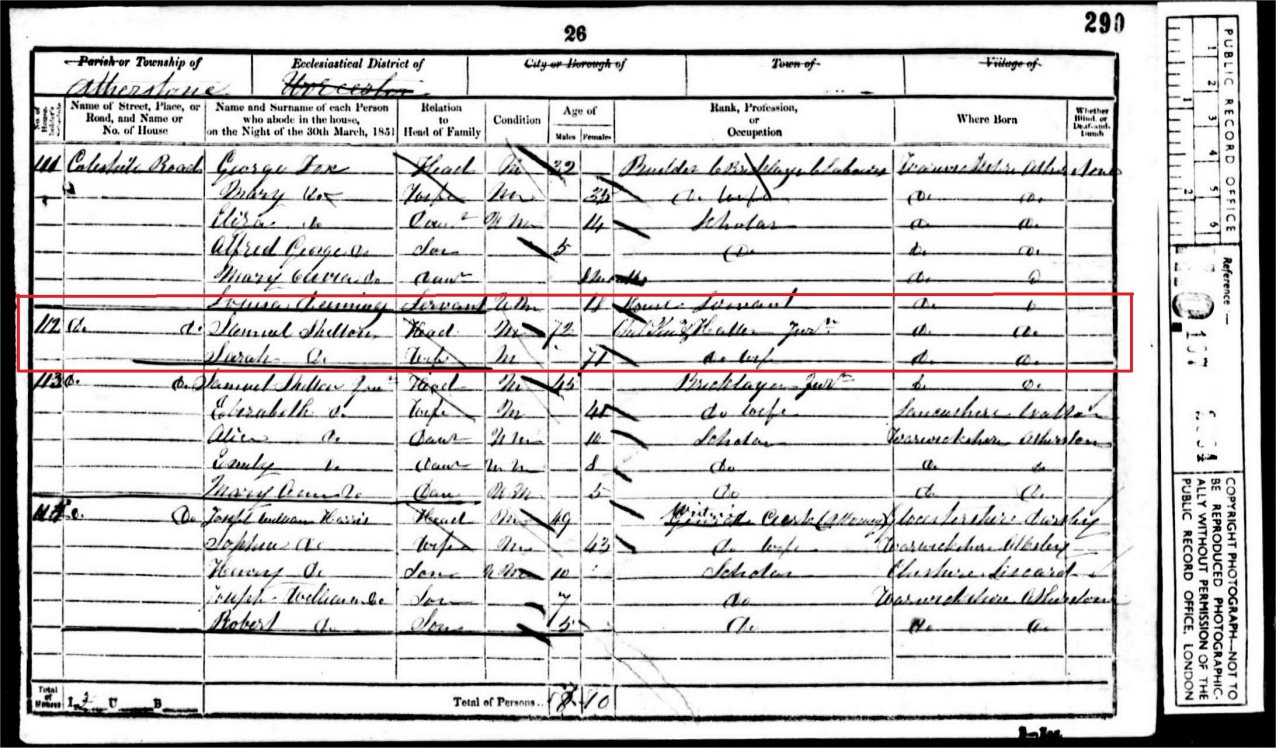 26
290
Parish or Township of Ecclesiastical District of City or Borough of Town of Village of
Atherstone
No. of House- holder's Schedule Name of Street, Place, or Road, and Name or No. of House Name and Surname of each Person who abode in the house, on the Night of the 30th March, 1851 Relation to Head of Family Condition Age of Males Females Rank, Profession, or Occupation Where Born Whether Blind, or Deaf-and-Dumb
111 Coleshill Road George Fox Head M 32 Builder Warwickshire None
Mary Do Wife M 35 do wife do do
Eliza do Daur U M 14 Scholar do do
Alfred George do Son 5 do do do
Mary do Daur Months do do
Louisa Servant U M 18 House Servant do do
112 do do Samuel Shilton Head M 72 Hatter Jurn do do
Sarah Do Wife M 71 do wife do do
113 do do Samuel Shilton Junr Head M 45 Bricklayer Jurn do do
Elizabeth do Wife M 40 do wife Lancashire
Alice do Daur U M 10 Scholar Warwickshire Atherston
Emily do Daur U M 8 do do do
Mary Ann do Daur U M 5 do do do
do Do Joseph William Harris Head M 49 Clerk (Attorney) Gloucestershire Dursley
Sophia do Wife M 43 do wife Warwickshire
Henry do Son U M 10 Scholar Cheshire Liscard
Joseph William do Son 7 do Warwickshire Atherstone
Robert do Son 5 do do do
Total of Houses I 3 U B Total of Persons 8 10
PUBLIC RECORD OFFICE
1 2 3 4 5 6
1 2
Reference :-
COPYRIGHT PHOTOGRAPH-NOT TO
BE REPRODUCED PHOTOGRAPHIC-
ALLY WITHOUT PERMISSION OF THE
PUBLIC RECORD OFFICE, LONDON